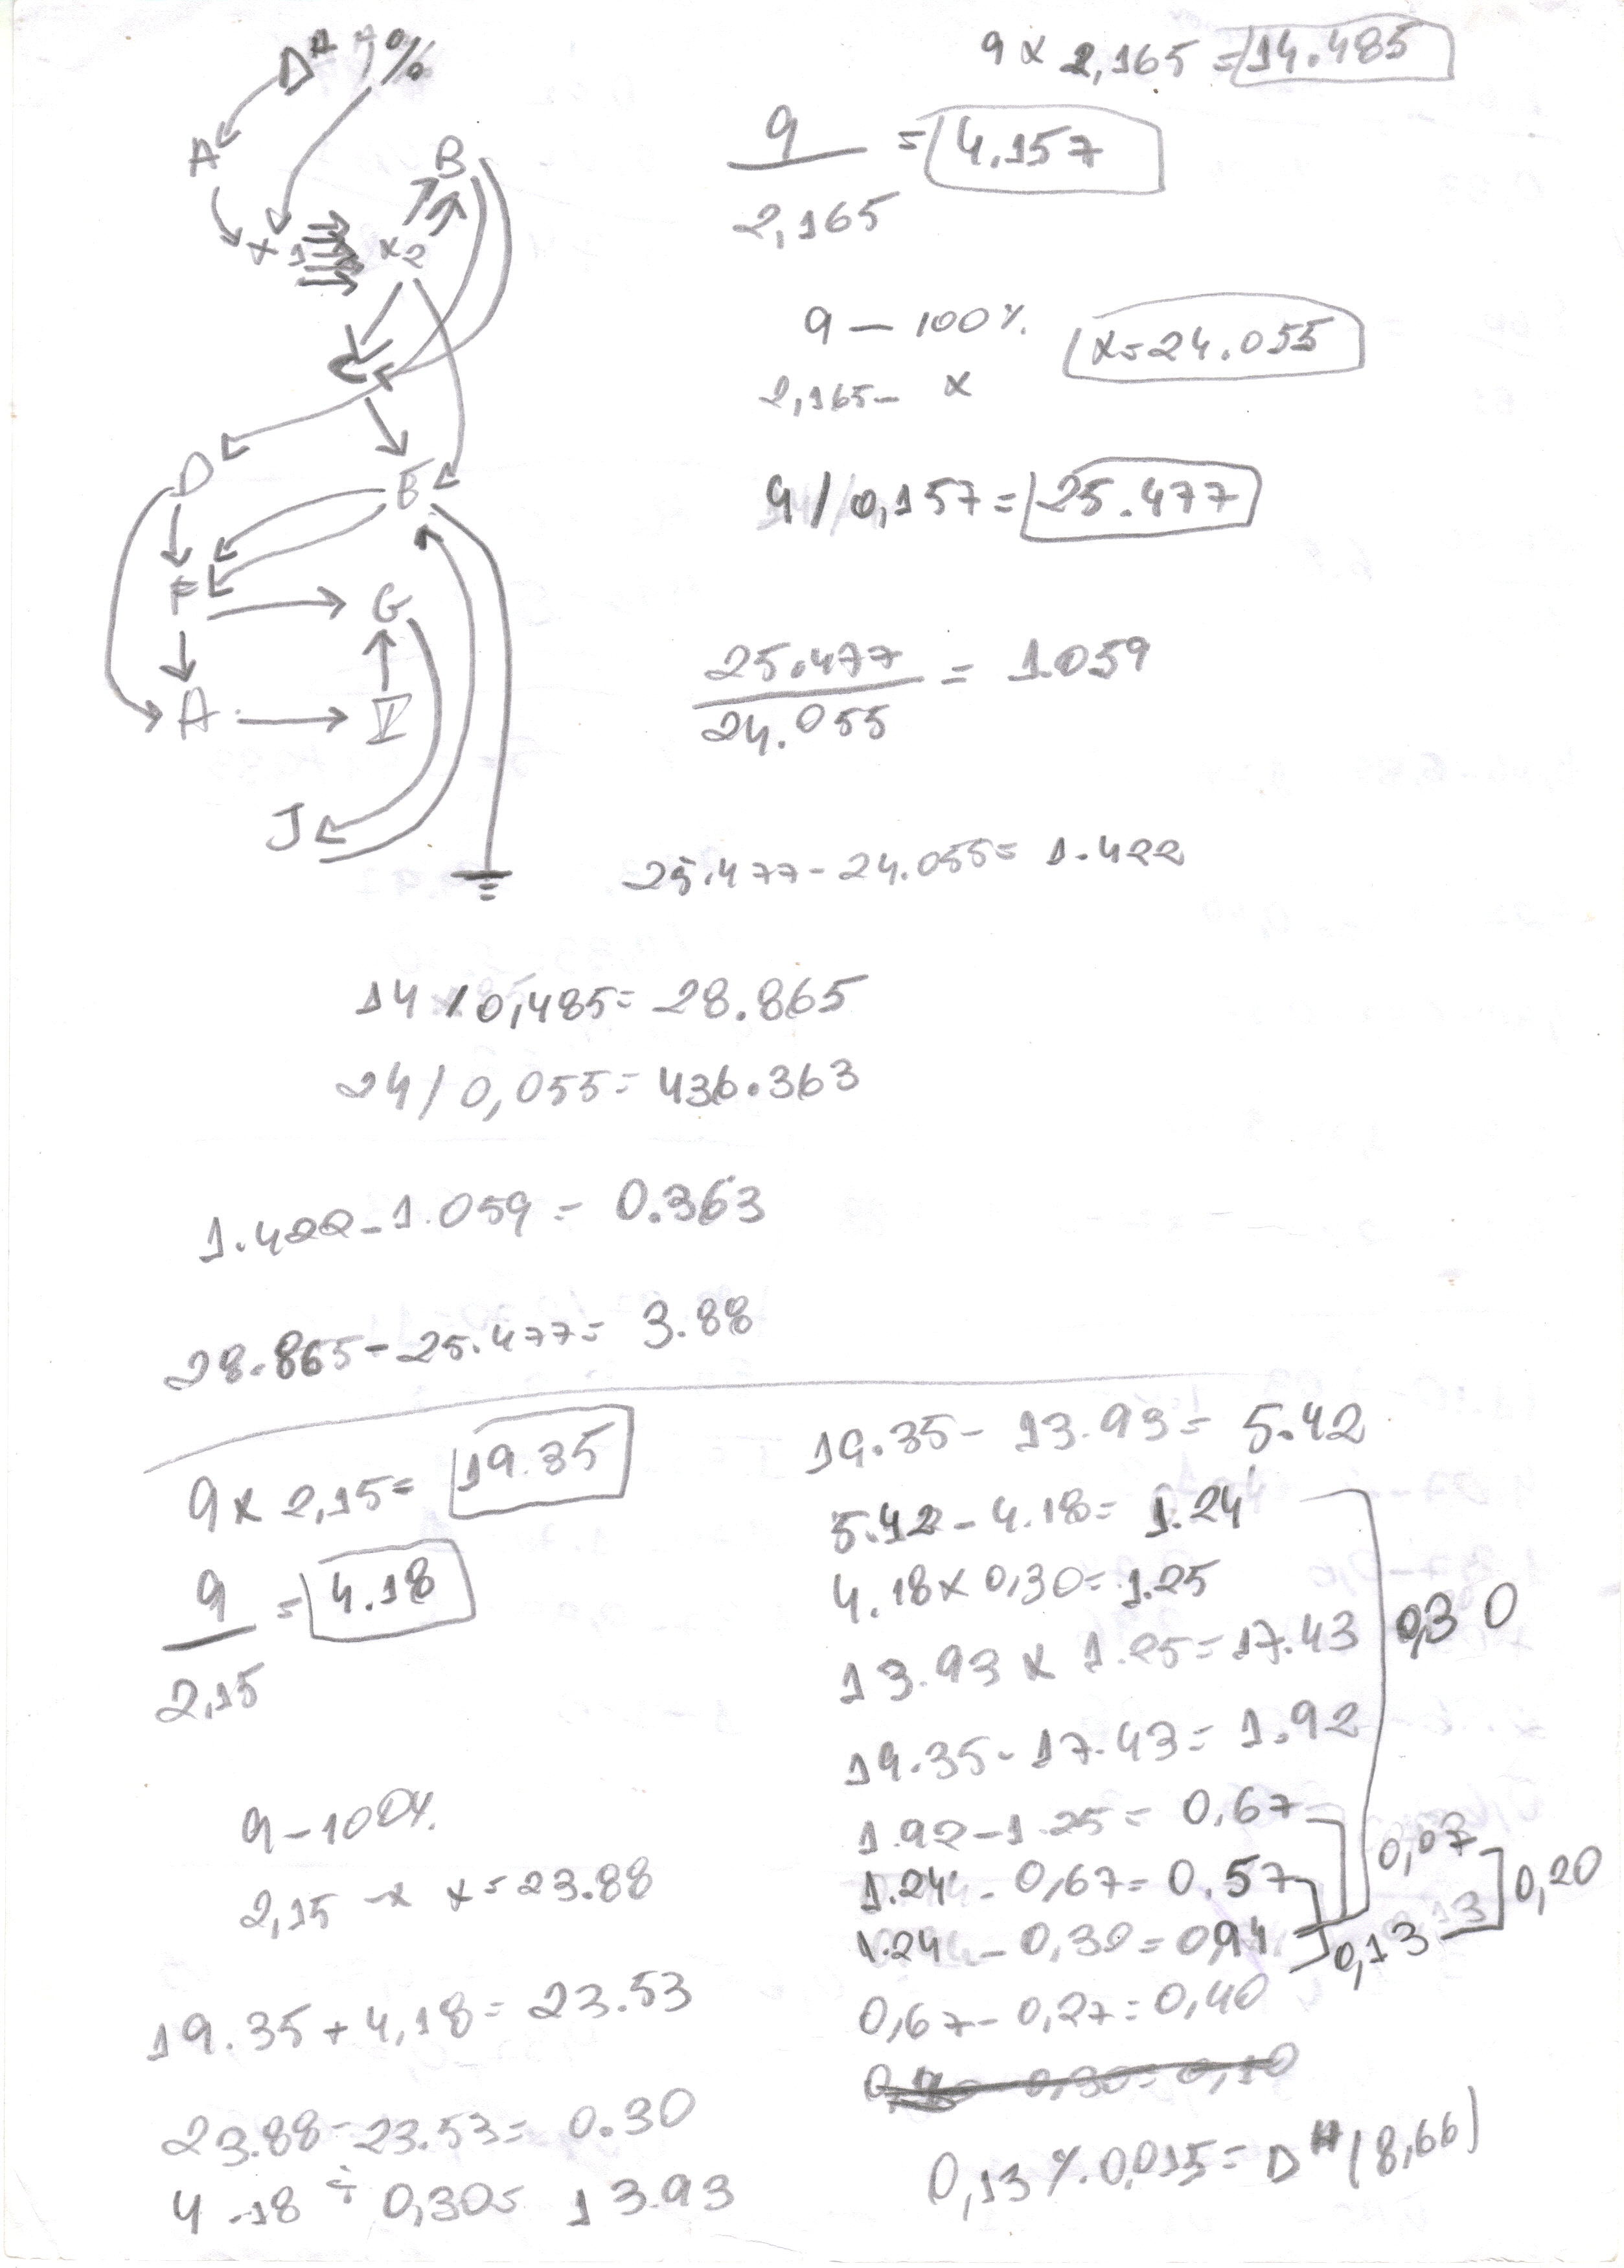 D 1%
A
B
x1 x2
C
D E
F G
A V
J
9 x 2,165 = 14.485
9 = 4.157
2,165
9 — 100%
x = 24.055
2,165 – x
9 / 0,157 = 25.477
25.477 = 1.059
24.055
25.477 - 24.055 = 1.422
14 / 0,485 = 28.865
24 / 0,055 = 436.363
1.422 - 1.059 = 0.363
28.865 - 25.477 = 3.88
9 x 2,15 = 19.35
9 = 4.18
2,15
9 – 100%
2,15 – x x = 23.88
19.35 + 4,18 = 23.53
23.88 - 23.53 = 0.30
4.18 ÷ 0,30 = 13.93
19.35 - 13.93 = 5.42
5.42 - 4.18 = 1.24
4.18 x 0,30 = 1.25
13.93 x 1.25 = 17.43
0,30
19.35 - 17.43 = 1.92
1.92 - 1.25 = 0,67
0,07
1.24 - 0,67 = 0.57
0,20
1.24 - 0,30 = 0,94
0,13
0,67 - 0,27 = 0,40
0,13 % 0,015 = D (8,66)